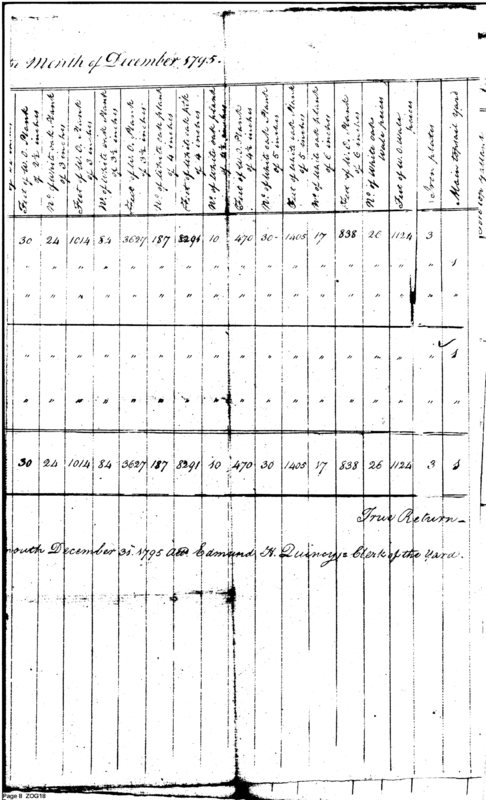 Month of December 1795.
Feet of W.O. Plank of 2½ inches
No of White oak Plank of 3 inches
Feet of W.O. Plank of 3 inches
No of White oak Plank of 3½ inches
Feet of W.O. Plank of 3½ inches
No of White oak plank of 4 inches
Feet of White oak plk of 4 inches
No of White oak plank of 4½ inches
Feet of W.O. Plank of 4½ inches
No of White oak Plank of 5 inches
Feet of White oak Plank of 5 inches
No of White oak plank of 6 inches
Feet of W.O. Plank of 6 inches
No of White oak Wale pieces
Feet of W.O. Wale pieces
Iron plates
Main Topsail Yard
30 24 1014 84 3627 187 8291 10 470 30 1405 17 838 26 1124 3
" " " " " " " " " " " " " " " " 1
" " " " " " " " " " " " " " " "
" " " " " " " " " " " " " " " " 1
" " " " " " " " " " " " " " " " "
30 24 1014 84 3627 187 8291 10 470 30 1405 17 838 26 1124 3 1
True Return
mouth December 31. 1795 Edmund H. Quincy Clerk of the Yard.
Page 8 ZOG18